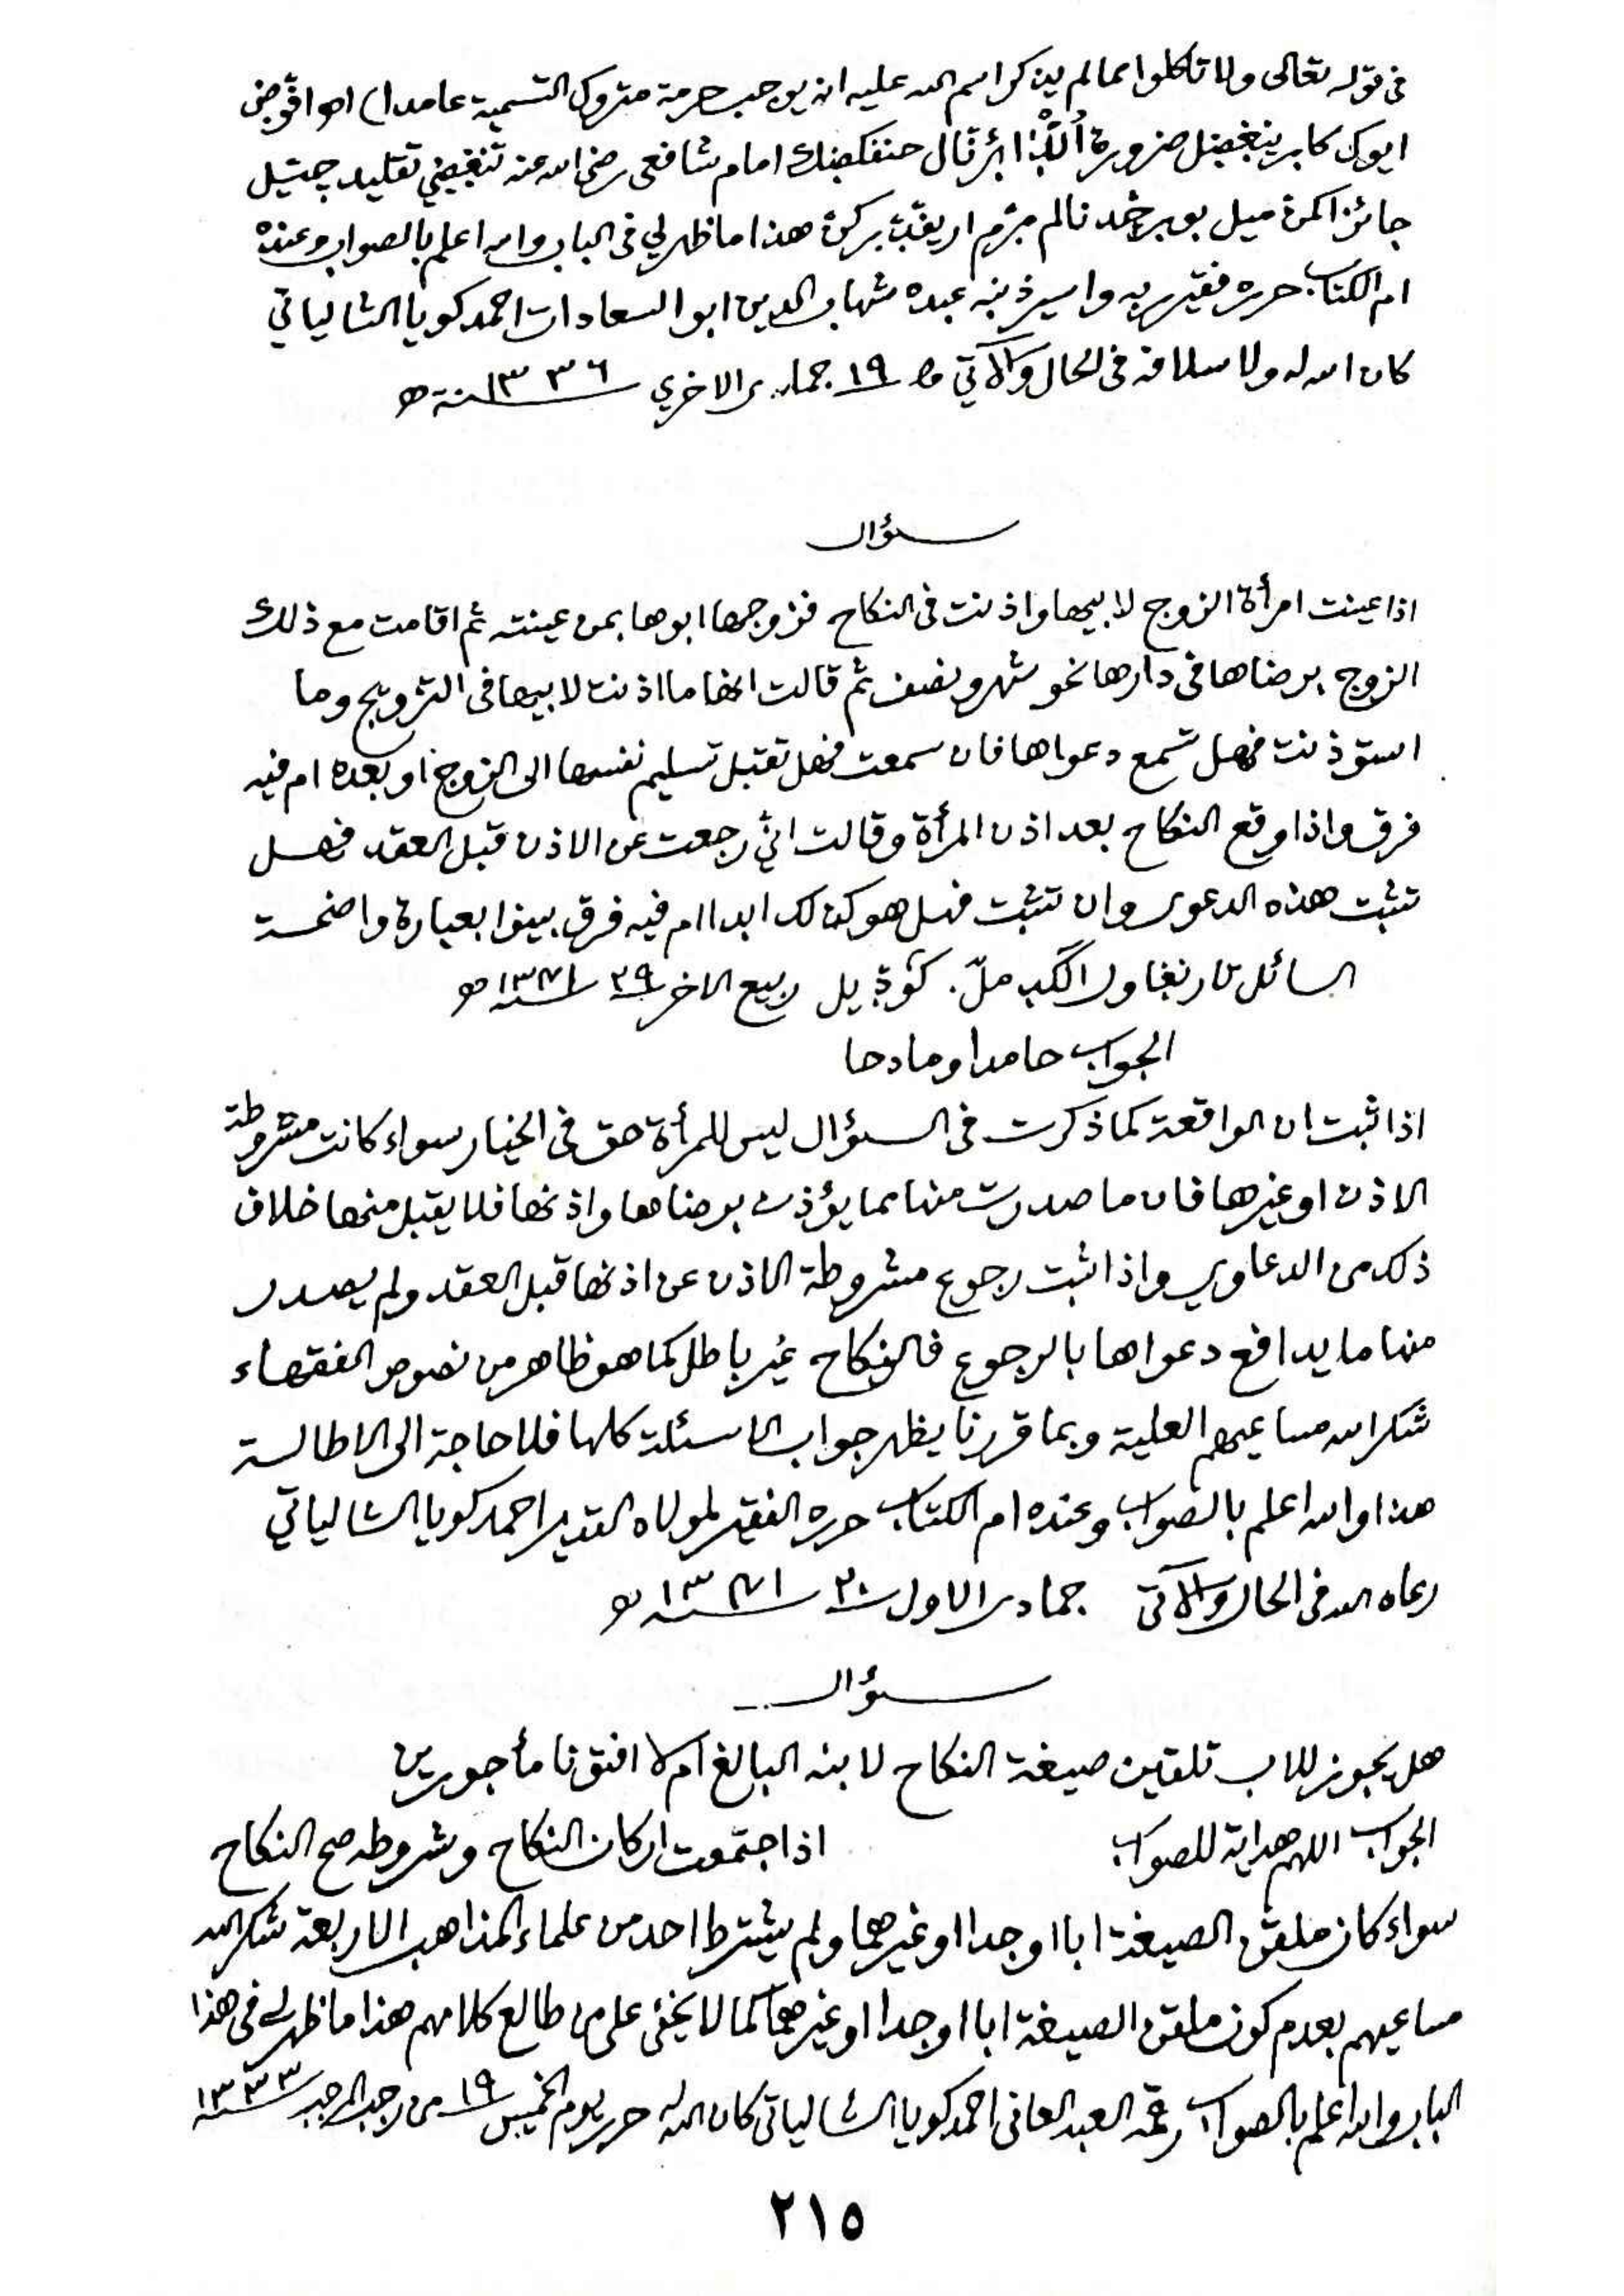 فى قوله تعالى ولا تأكلوا مما لم يذكر اسم الله عليه انه يوجب حرمة متروك التسمية عامدا) اھ
ايوك كابر ضرورة حنفكضك امام شافعى رضي الله عنه تقليد چيتيل
جائز هذا ما ظهر لي فى الباب والله اعلم بالصواب وعنده
ام الكتاب حرره فقير ربه واسير ذنبه عبده شهاب الدين ابو السعادات احمد كويا الشالياتي
كان الله له ولاسلافه فى الحال والآتي ١٩ جمادى الاخري ١٣٣٦سنة ھ
سؤال
اذا عينت امرأة الزوج لابيها واذنت فى النكاح فزوجها ابوها بمن عينته ثم اقامت مع ذلك
الزوج برضاها فى دارها نحو شهر ونصف ثم قالت انها ما اذنت لابيها فى التزويج وما
استؤذنت فهل تسمع دعواها فان سمعت فهل تقبل تسليم نفسها الى الزوج او بعده ام فيه
فرق واذا وقع النكاح بعد اذن المرأة وقالت اني رجعت عن الاذن قبل العقد فهل
تثبت هذه الدعوى وان تثبت فهل هو كذلك ابدا ام فيه فرق بينوا بعبارة واضحة
السائل ربيع الاخر ٢٩ سنة ١٣٧١ ھ
الجواب حامدا ومادحا
اذا ثبت ان الواقعة كما ذكرت فى السؤال ليس للمرأة حق فى الخيار سواء كانت مشروطة
الاذن او غيرها فان ما صدرت منها مما يؤذن برضاها واذنها فلا يقبل منها خلاف
ذلك من الدعاوي واذا ثبت رجوع مشروطة الاذن عن اذنها قبل العقد ولم يصدر
منها ما يدافع دعواها بالرجوع فالنكاح غير باطل كما هو ظاهر من نصوص الفقهاء
شكر الله مساعيهم العلية وبما قررنا يظهر جواب الاسئلة كلها فلا حاجة الى الاطالة
هذا والله اعلم بالصواب وعنده ام الكتاب حرره الفقير لمولاه القدير احمد كويا الشالياتي
رعاه الله فى الحال والآتى جمادى الاول ٢٠ سنة ١٣٧١ ھ
سؤال
هل يجوز للاب تلقين صيغة النكاح لابنه البالغ ام لا افتونا مأجورين
الجواب اللهم هداية للصواب اذا اجتمعت اركان النكاح وشروطه صح النكاح
سواء كان ملقن الصيغة ابا او جدا او غيرهما ولم يشترط احد من علماء المذاهب الاربعة شكر الله
مساعيهم بعدم كون ملقن الصيغة ابا او جدا او غيرهما كما لا يخفى على من طالع كلامهم هذا ما ظهر لى فى هذا
الباب والله اعلم بالصواب رقمه العبد العانى احمد كويا الشالياتى كان الله له حرر يوم الخميس ١٩ من رجب المرجب سنة ١٣٣٣
٢١٥